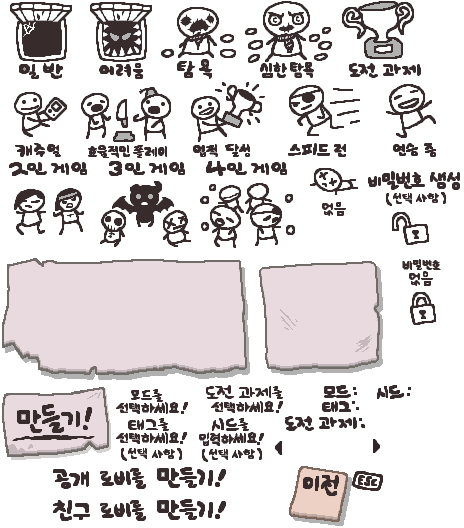 일반 어려움 탐욕 심한탐욕 도전 과제
캐주얼 효율적인 플레이 업적 달성 스피드런 연습 중
2인 게임 3인 게임 4인 게임
없음
비밀번호 생성
(선택 사항)
비밀번호
없음
만들기!
모드를
선택하세요!
도전 과제를
선택하세요!
모드: 시드:
태그:
도전 과제:
태그를
선택하세요!
(선택 사항)
시드를
입력하세요!
(선택 사항)
공개 로비를 만들기!
친구 로비를 만들기!
이전
ESC